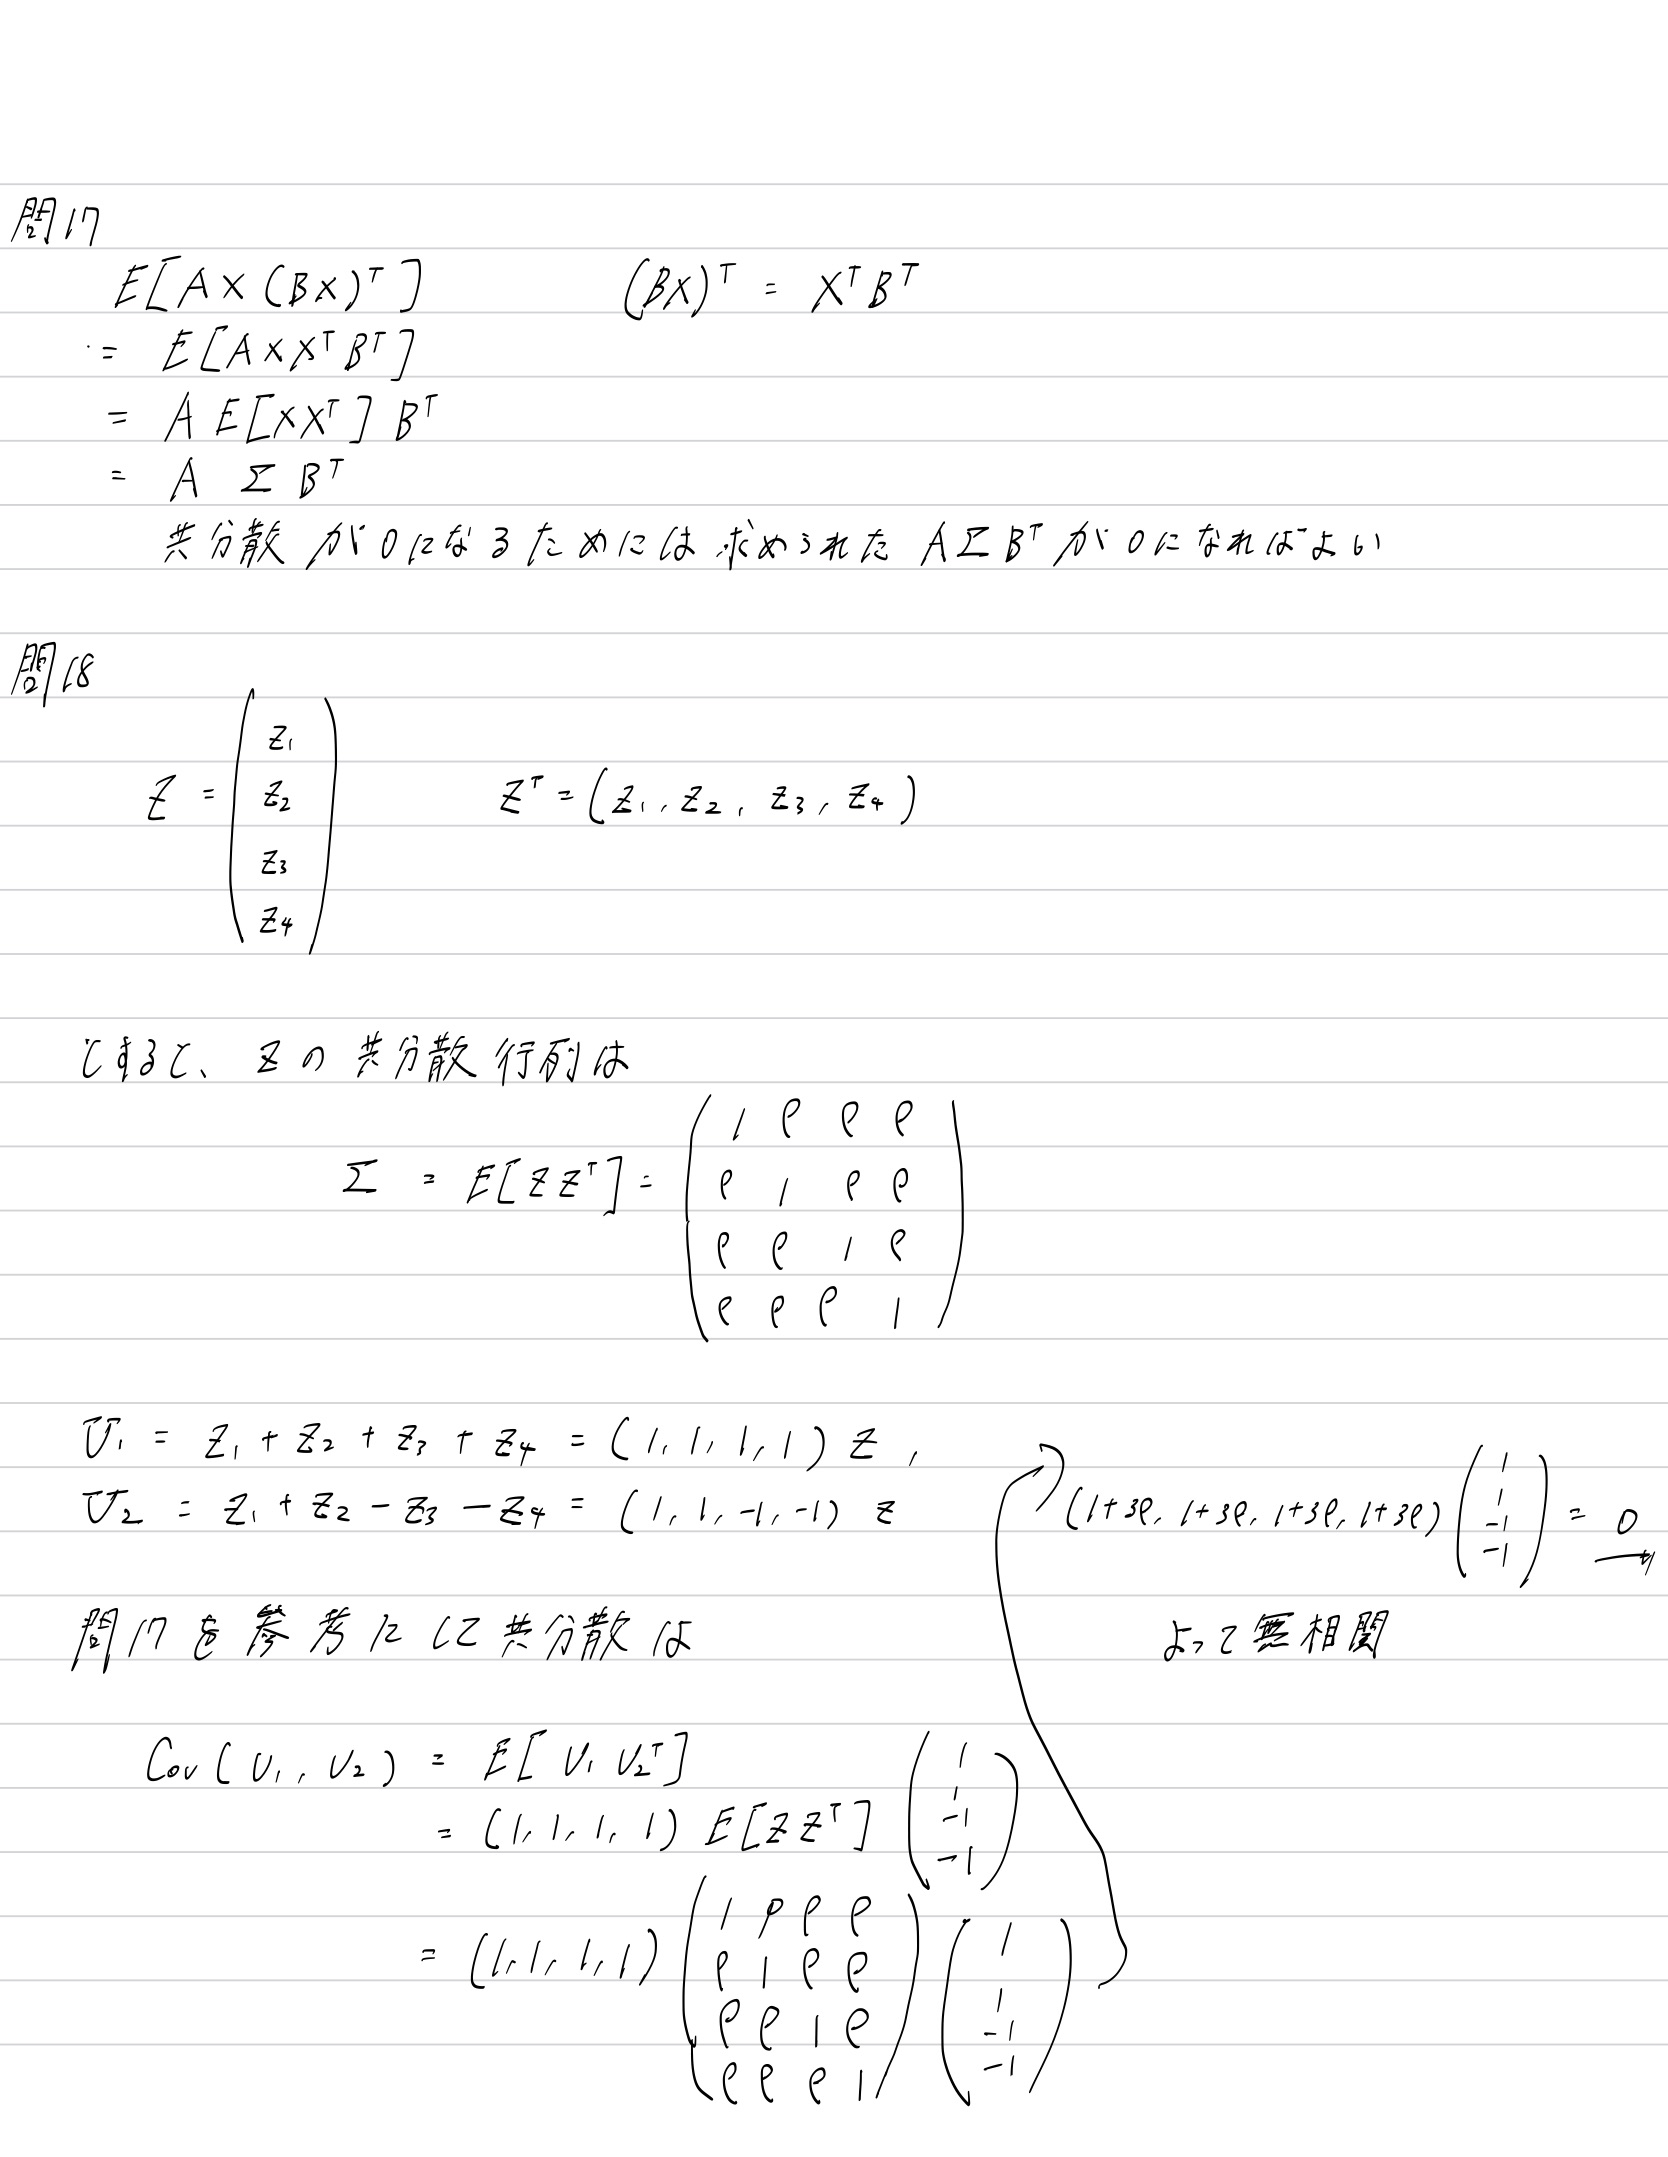 問17
E[AX(BX)ᵀ]　(BX)ᵀ = XᵀBᵀ
= E[AXXᵀBᵀ]
= A E[XXᵀ] Bᵀ
= A Σ Bᵀ
共分散が0になるためには求められたAΣBᵀが0になればよい
問18
Z = (z₁ z₂ z₃ z₄)　Zᵀ = (z₁, z₂, z₃, z₄)
とすると、Zの共分散行列は
Σ = E[ZZᵀ] =
1 ρ ρ ρ
ρ 1 ρ ρ
ρ ρ 1 ρ
ρ ρ ρ 1
U₁ = z₁ + z₂ + z₃ + z₄ = (1, 1, 1, 1) Z,
U₂ = z₁ + z₂ − z₃ − z₄ = (1, 1, −1, −1) Z
問17を参考にして共分散は
Cov(U₁, U₂) = E[U₁ U₂ᵀ]
= (1, 1, 1, 1) E[ZZᵀ] (1 1 −1 −1)
= (1, 1, 1, 1)
1 ρ ρ ρ
ρ 1 ρ ρ
ρ ρ 1 ρ
ρ ρ ρ 1
(1 1 −1 −1)
(1+3ρ, 1+3ρ, 1+3ρ, 1+3ρ) (1 1 −1 −1) = 0
よって無相関